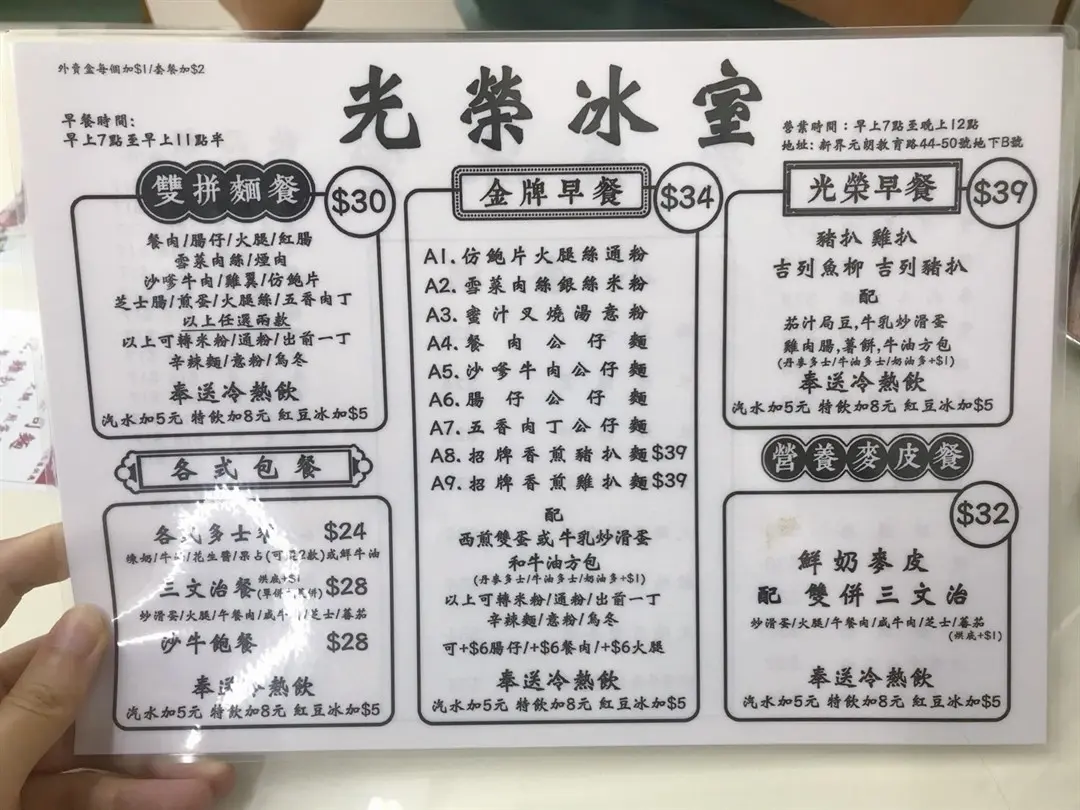 外賣盒每個加$1/套餐加$2
早餐時間:
早上7點至早上11點半
光榮冰室
營業時間：早上7點至晚上12點
地址: 新界元朗教育路44-50號地下B號
雙拼麵餐 $30
餐肉/腸仔/火腿/紅腸
雪菜肉絲/煙肉
沙嗲牛肉/雞翼/仿鮑片
芝士腸/煎蛋/火腿絲/五香肉丁
以上任選兩款
以上可轉米粉/通粉/出前一丁
辛辣麵/意粉/烏冬
奉送冷熱飲
汽水加5元 特飲加8元 紅豆冰加$5
各式包餐
各式多士 $24
煉奶/牛 /花生醬/果占(可 2款)或鮮牛油
三文治餐 烘底+$1 $28
炒滑蛋/火腿/午餐肉/咸牛 /芝士/蕃茄
沙牛飽餐 $28
奉送冷熱飲
汽水加5元 特飲加8元 紅豆冰加$5
金牌早餐 $34
A1.仿鮑片火腿絲通粉
A2.雪菜肉絲銀絲米粉
A3.蜜汁叉燒湯意粉
A4.餐肉公仔麵
A5.沙嗲牛肉公仔麵
A6.腸仔公仔麵
A7.五香肉丁公仔麵
A8.招牌香煎豬扒麵$39
A9.招牌香煎雞扒麵$39
配
西煎雙蛋或牛乳炒滑蛋
和牛油方包
(丹麥多士/牛油多士/奶油多+$1)
以上可轉米粉/通粉/出前一丁
辛辣麵/意粉/烏冬
可+$6腸仔/+$6餐肉/+$6火腿
奉送冷熱飲
汽水加5元 特飲加8元 紅豆冰加$5
光榮早餐 $39
豬扒 雞扒
吉列魚柳 吉列豬扒
配
茄汁局豆,牛乳炒滑蛋
雞肉腸,薯餅,牛油方包
(丹麥多士/牛油多士/奶油多+$1)
奉送冷熱飲
汽水加5元 特飲加8元 紅豆冰加$5
營養麥皮餐
$32
鮮奶麥皮
配 雙併三文治
炒滑蛋/火腿/午餐肉/咸牛肉/芝士/蕃茄
(烘底+$1)
奉送冷熱飲
汽水加5元 特飲加8元 紅豆冰加$5